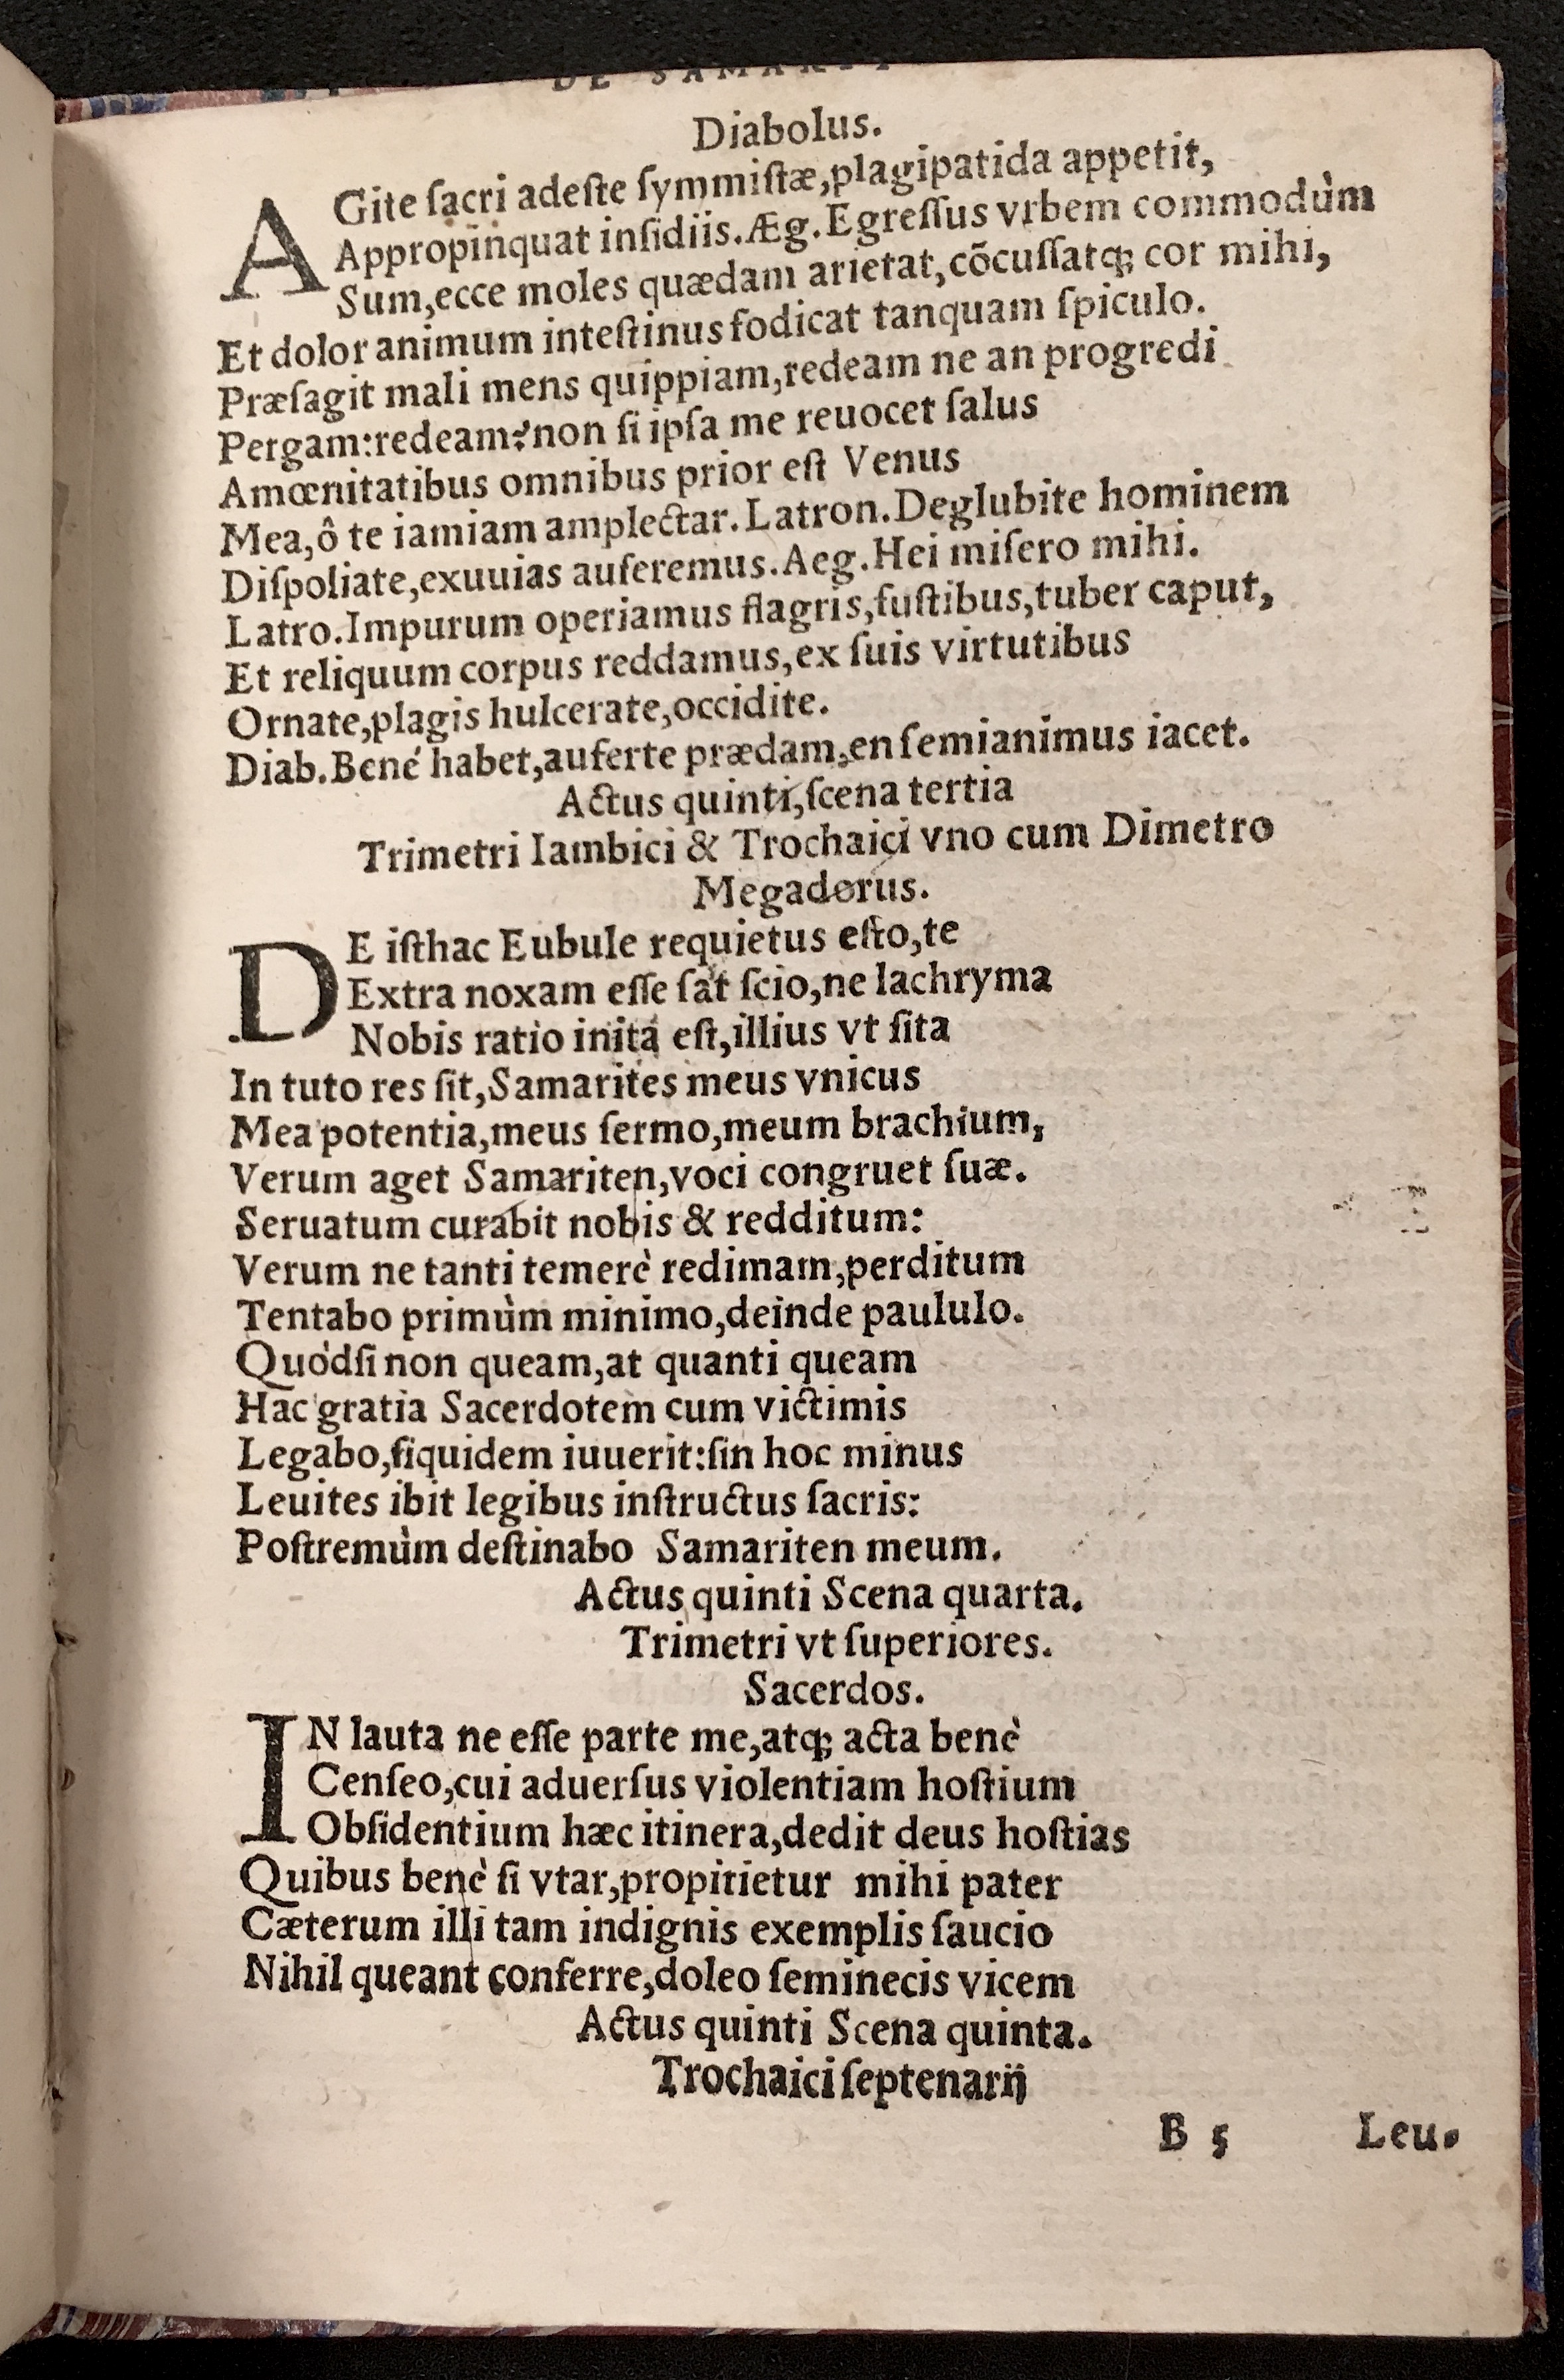 DE SAMARIT
Diabolus.
AGite ſacri adeſte ſymmiſtæ,plagipatida appetit,
Appropinquat inſidiis.Æg.Egreſſus vrbem commodùm
Sum,ecce moles quædam arietat,cõcuſſatq́; cor mihi,
Et dolor animum inteſtinus fodicat tanquam ſpiculo.
Præſagit mali mens quippiam,redeam ne an progredi
Pergam:redeam?non ſi ipſa me reuocet ſalus
Amœnitatibus omnibus prior eſt Venus
Mea,ô te iamiam amplectar.Latron.Deglubite hominem
Diſpoliate,exuuias auferemus.Aeg.Hei miſero mihi.
Latro.Impurum operiamus flagris,fuſtibus,tuber caput,
Et reliquum corpus reddamus,ex ſuis virtutibus
Ornate,plagis hulcerate,occidite.
Diab.Bené habet,auferte prædam,en ſemianimus iacet.
Actus quinti,ſcena tertia
Trimetri Iambici & Trochaici vno cum Dimetro
Megadorus.
DE iſthac Eubule requietus eſto,te
Extra noxam eſſe ſat ſcio,ne lachryma
Nobis ratio inita eſt,illius vt ſita
In tuto res ſit,Samarites meus vnicus
Mea potentia,meus ſermo,meum brachium,
Verum aget Samariten,voci congruet ſuæ.
Seruatum curabit nobis & redditum:
Verum ne tanti temerè redimam,perditum
Tentabo primùm minimo,deinde paululo.
Quòdſi non queam,at quanti queam
Hac gratia Sacerdotem cum victimis
Legabo,ſiquidem iuuerit:ſin hoc minus
Leuites ibit legibus inſtructus ſacris:
Poſtremùm deſtinabo Samariten meum.
Actus quinti Scena quarta.
Trimetri vt ſuperiores.
Sacerdos.
IN lauta ne eſſe parte me,atq; acta benè
Cenſeo,cui aduerſus violentiam hoſtium
Obſidentium hæc itinera,dedit deus hoſtias
Quibus benè ſi vtar,propitietur mihi pater
Cæterum illi tam indignis exemplis ſaucio
Nihil queant conferre,doleo ſeminecis vicem
Actus quinti Scena quinta.
Trochaici ſeptenarij
B 5 Leu.